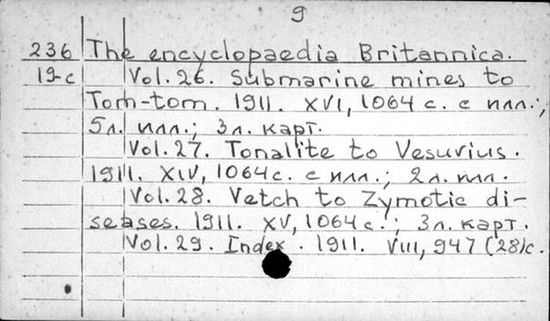 9
236 The encyclopaedia Britannica.
19-c Vol. 26. Submarine mines to
Tom-tom. 1911. XVI, 1064 с. с илл.;
5л. илл.; 3л. карт.
Vol. 27. Tonalite to Vesuvius.
1911. XIV, 1064 с. с илл.; 2л. илл.
Vol. 28. Vetch to Zymotic di-
seases. 1911. XV, 1064 с.; 3л. карт.
Vol. 29. Index. 1911. VIII, 947 (28)с.